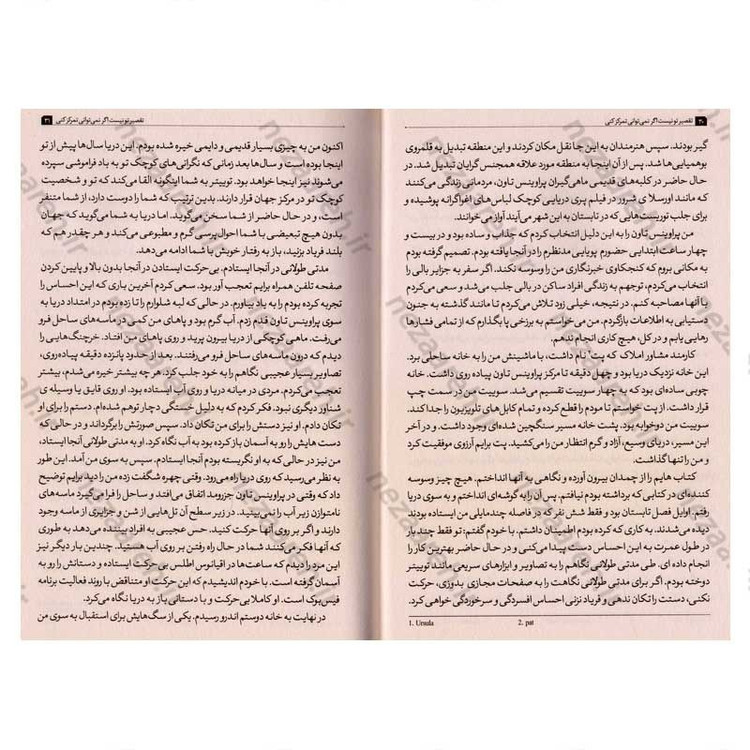 ۳۰ تقصیر تو نیست اگر نمی‌توانی تمرکز کنی
گیر بودند. سپس هنرمندان به این جا نقل مکان کردند و این منطقه تبدیل به قلمروی
بوهمیایی‌ها شد. پس از آن اینجا به منطقه مورد علاقه همجنس گرایان تبدیل شد. در
حال حاضر در کلبه‌های قدیمی ماهی‌گیران پراوینس تاون، مردمانی زندگی می‌کنند
که مانند اورسلا ی شرور در فیلم پری دریایی کوچک لباس‌های اغواگرانه پوشیده و
برای جلب توریست‌هایی که در تابستان به این شهر می‌آیند آواز می‌خوانند.
من پراوینس تاون را به این دلیل انتخاب کردم که جذاب و ساده بود و در بیست و
چهار ساعت ابتدایی حضورم پویایی مدنظرم را در آنجا یافته بودم. تصمیم گرفته بودم
به مکانی بروم که کنجکاوی خبرنگاری من را وسوسه نکند. اگر سفر به جزایر بالی را
انتخاب می‌کردم، توجهم به زندگی افراد ساکن در بالی جلب می‌شد و سعی می‌کردم
با آنها مصاحبه کنم. در نتیجه، خیلی زود تلاش می‌کردم تا مانند گذشته به جنون
دستیابی به اطلاعات بازگردم. من می‌خواستم به برزخی پا بگذارم که از تمامی فشارها
رهایی یابم و در کل، هیچ کاری انجام ندهم.
کارمند مشاور املاک که پت² نام داشت، با ماشینش من را به خانه ساحلی برد.
این خانه نزدیک دریا بود و چهل دقیقه تا مرکز پراوینس تاون پیاده روی داشت. خانه
چوبی ساده‌ای بود که به چهار سوییت تقسیم می‌شد. سوییت من در سمت چپ
قرار داشت. از پت خواستم تا مودم را قطع کرده و تمام کابل‌های تلویزیون را جدا کند.
سوییت من دوخوابه بود. پشت خانه مسیر سنگچین شده‌ای وجود داشت. و در آخر
این مسیر، دریای وسیع، آزاد و گرم انتظار من را می‌کشید. پت برایم آرزوی موفقیت کرد
و من را تنها گذاشت.
کتاب هایم را از چمدان بیرون آورده و نگاهی به آنها انداختم. هیچ چیز وسوسه
کننده‌ای در کتابی که برداشته بودم نیافتم. پس آن را به گوشه‌ای انداختم و به سوی دریا
رفتم. اوایل فصل تابستان بود و فقط شش نفر که در فاصله چندمایلی من ایستاده بودند
دیده می‌شدند. به کاری که کرده بودم اطمینان داشتم. با خودم گفتم: تو فقط چند بار
در طول عمرت به این احساس دست پیدا می‌کنی و در حال حاضر بهترین کار را
انجام داده ای. طی مدتی طولانی نگاهم را به تصاویر و ابزارهای سریعی مانند توییتر
دوخته بودم. اگر برای مدتی طولانی نگاهت را به صفحات مجازی بدوزی، حرکت
نکنی، دستت را تکان ندهی و فریاد نزنی احساس افسردگی و سرخوردگی خواهی کرد.
1. Ursula 2. pat
تقصیر تو نیست اگر نمی‌توانی تمرکز کنی ۳۱
اکنون من به چیزی بسیار قدیمی و دایمی خیره شده بودم. این دریا سال‌ها پیش از تو
اینجا بوده است و سال‌ها بعد زمانی که نگرانی‌های کوچک تو به باد فراموشی سپرده
می‌شوند نیز اینجا خواهد بود. توییتر به شما اینگونه القا می‌کند که تو و شخصیت
کوچک تو در مرکز جهان قرار دارند. بدین ترتیب که شما را دوست دارد، از شما متنفر
است، و در حال حاضر از شما سخن می‌گوید. اما دریا به شما می‌گوید که جهان
بدون هیچ تبعیضی با شما احوال پرسی گرم و مطبوعی می‌کند و هر چقدر هم که
بلند فریاد بزنید، باز به رفتار خویش با شما ادامه می‌دهد.
مدتی طولانی در آنجا ایستادم. بی‌حرکت ایستادن در آنجا بدون بالا و پایین کردن
صفحه تلفن همراه برایم تعجب آور بود. سعی کردم آخرین باری که این احساس را
تجربه کرده بودم را به یاد بیاورم. در حالی که لبه شلوارم را تا زده بودم در امتداد دریا به
سوی پراوینس تاون قدم زدم. آب گرم بود و پاهای من کمی در ماسه‌های ساحل فرو
می‌رفت. ماهی کوچکی از دریا بیرون پرید و روی پاهای من افتاد. خرچنگ‌هایی را
دیدم که درون ماسه‌های ساحل فرو می‌رفتند. بعد از حدود پانزده دقیقه پیاده‌روی،
تصاویر بسیار عجیبی نگاهم را به خود جلب کرد. هر چه بیشتر خیره می‌شدم، بیشتر
تعجب می‌کردم. مردی در میانه دریا و روی آب ایستاده بود. او روی قایق یا وسیله ی
شناور دیگری نبود. فکر کردم که به دلیل خستگی دچار توهم شده‌ام. دستم را برای او
تکان دادم. او نیز دستش را برای من تکان داد. سپس صورتش را برگرداند و در حالی که
دست هایش را رو به آسمان باز کرده بود به آب نگاه کرد. او به مدتی طولانی آنجا ایستاد،
من نیز در حالی که به او نگریسته بودم آنجا ایستادم. سپس به سوی من آمد. این طور
به نظر می‌رسید که روی دریا راه می‌رود. وقتی چهره شگفت زده من را دید برایم توضیح
داد که وقتی در پراوینس تاون جزرومد اتفاق می‌افتد و ساحل را فرا می‌گیرد ماسه‌های
نامتوازن زیر آب را نمی‌بینید. در زیر سطح آن تل‌هایی از شن و جزایری از ماسه وجود
دارند و اگر بر روی آنها حرکت کنید، حس عجیبی به افراد بیننده می‌دهد به طوری
که آنها فکر می‌کنند شما در حال راه رفتن بر روی آب هستید. چندین بار دیگر نیز
این مرد را دیدم که ساعت‌ها در اقیانوس اطلس بی حرکت ایستاده و دستانش را رو به
آسمان گرفته است. با خودم اندیشیدم که این حرکت او متناقض با روند فعالیت برنامه
فیس‌بوک است. او کاملا بی حرکت و با دستانی باز به دریا نگاه می‌کرد.
در نهایت به خانه دوستم اندرو رسیدم. یکی از سگ‌هایش برای استقبال به سوی من